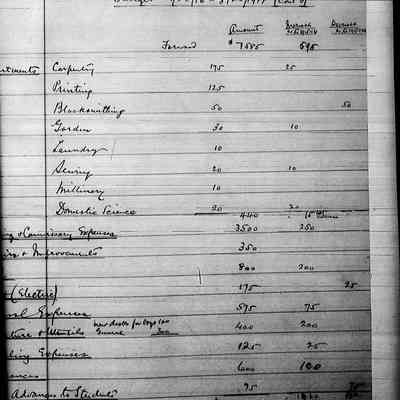 Amount Increase Decrease
Forward $7585 595
rtments Carpentry 175 25
Printing 125
Blacksmithing 50 50
Garden 30 10
Laundry 10
Sewing 20 10
Millinery 10
Domestic Science 20 20
440
g & Commissary Expenses 3500 250
& Improvements 350
800 200
(Electric) 175 25
Expenses 575 75
ture & Utensils new desks for boys 100 400 200
300
Expenses 125 25
600 100
Advances to Students 75